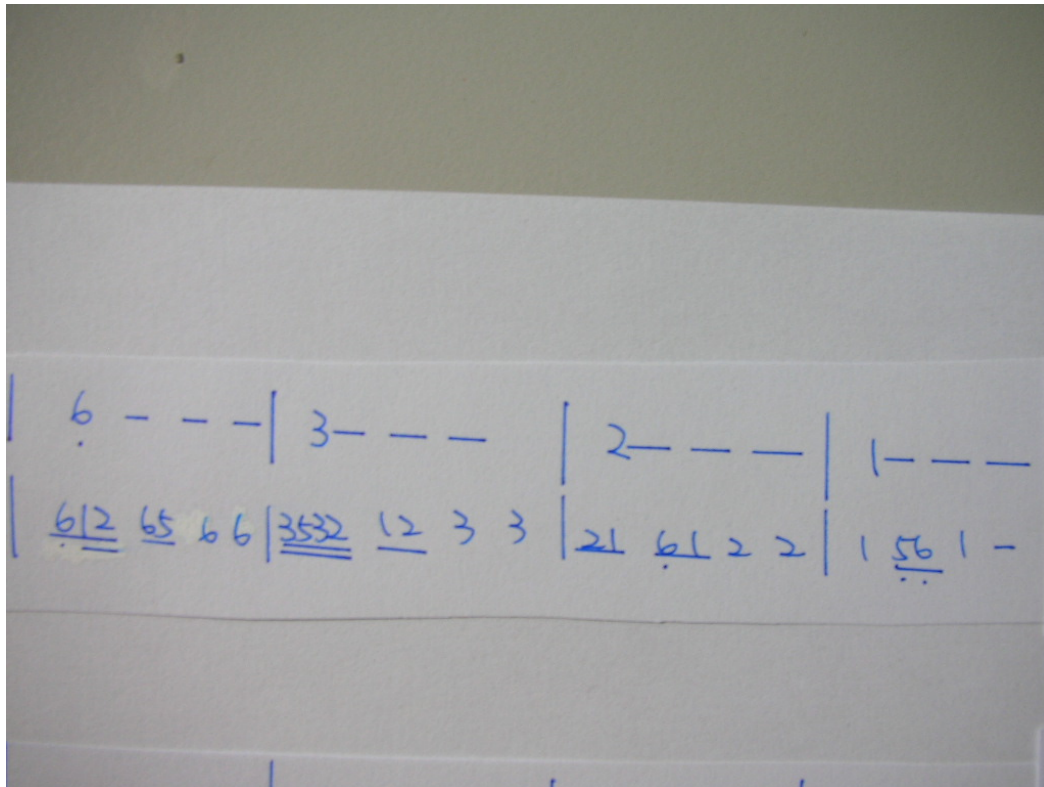 | 6̣ - - - | 3 - - - | 2 - - - | 1 - - -
| 6̣12 65 6 6 | 3532 12 3 3 | 21 6̣1 2 2 | 1 5̣6̣ 1 -